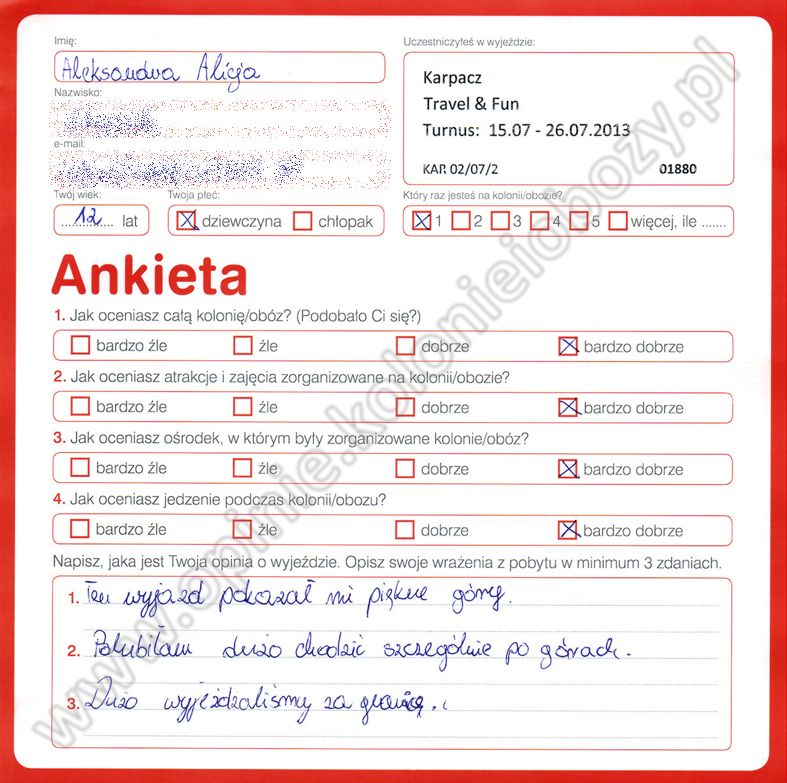 Imię:
Aleksandra Alicja
Nazwisko:
e-mail:
Uczestniczyłeś w wyjeździe:
Karpacz
Travel & Fun
Turnus: 15.07 - 26.07.2013
KAR 02/07/2 01880
Twój wiek: Twoja płeć: Który raz jesteś na kolonii/obozie?
12 lat dziewczyna chłopak 1 2 3 4 5 więcej, ile .......
Ankieta
1. Jak oceniasz całą kolonię/obóz? (Podobało Ci się?)
bardzo źle źle dobrze bardzo dobrze
2. Jak oceniasz atrakcje i zajęcia zorganizowane na kolonii/obozie?
bardzo źle źle dobrze bardzo dobrze
3. Jak oceniasz ośrodek, w którym były zorganizowane kolonie/obóz?
bardzo źle źle dobrze bardzo dobrze
4. Jak oceniasz jedzenie podczas kolonii/obozu?
bardzo źle źle dobrze bardzo dobrze
Napisz, jaka jest Twoja opinia o wyjeździe. Opisz swoje wrażenia z pobytu w minimum 3 zdaniach.
1. Ten wyjazd pokazał mi piękne góry.
2. Polubiłam dużo chodzić szczególnie po górach.
3. Dużo wyjeżdzaliśmy za granicę.
www.opinie.kolonieiobozy.pl